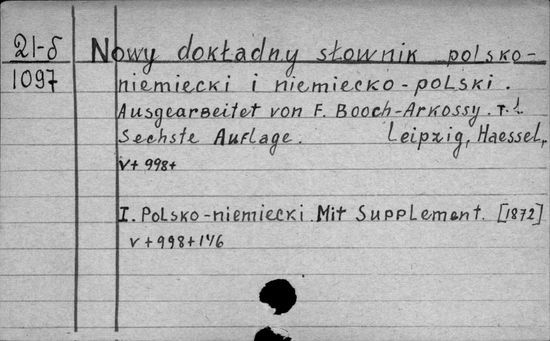 21-δ
1097
Nowy dokładny słownik polsko-
niemiecki i niemiecko-polski.
Ausgearbeitet von F. Booch-Arkossy. T. 1.
Sechste Auflage. Leipzig, Haessel,
V+998+
I. Polsko-niemiecki. Mit Supplement. [1872]
V+998+146